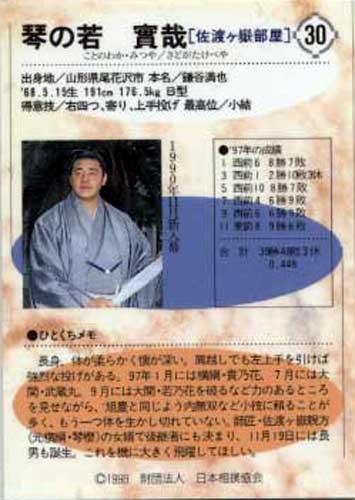 琴の若 實哉[佐渡ヶ嶽部屋] 30
ことのわか・みつや/さどがたけべや
出身地/山形県尾花沢市 本名/鎌谷満也
'68.5.15生 191cm 176.5kg B型
得意技/右四つ、寄り、上手投げ 最高位/小結
1990年11月新入幕
'97年の成績
1 西前6 8勝7敗
3 西前1 2勝10敗3休
5 西前10 8勝7敗
7 西前4 6勝9敗
9 西前6 6勝9敗
11 東前8 9勝6敗
合計 39勝48敗3休
0.448
●ひとくちメモ
長身、体が柔らかく懐が深い。肩越しでも左上手を引けば
強烈な投げがある。97年1月には横綱・貴乃花、7月には大
関・武蔵丸、9月には大関・若乃花を破るなど力のあるところ
を見せながら、旭豊と同じよう内無双など小技に頼ることが
多く、もう一つ体を生かし切れていない。師匠・佐渡ヶ嶽親方
(元横綱・琴櫻)の女婿で後継者にも決まり、11月19日には長
男も誕生。これを機に大きく飛躍してほしい。
©1998 財団法人 日本相撲協会